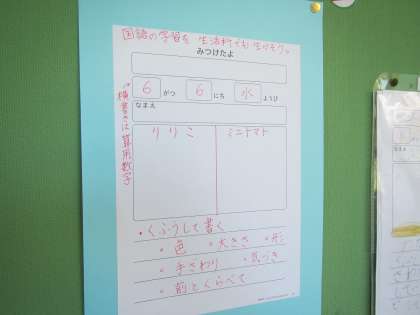 国語の学習を 生活科でも 生かそう。
みつけたよ
6 がつ 6 にち 水 ようび
なまえ
横書きは算用数字
りりこ ミニトマト
・くふうして書く
・色 ・大きさ ・形
・手ざわり ・気づき
・前とくらべて